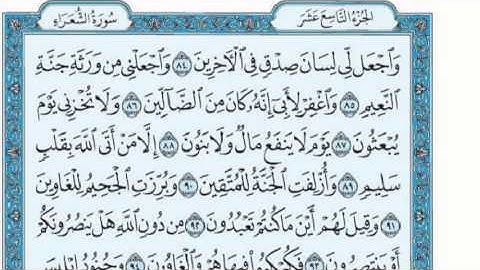 الجزء التاسع عشر
سورة الشعراء
وَاجْعَل لِّي لِسَانَ صِدْقٍ فِي الْآخِرِينَ ﴿٨٤﴾ وَاجْعَلْنِي مِن وَرَثَةِ جَنَّةِ
النَّعِيمِ ﴿٨٥﴾ وَاغْفِرْ لِأَبِي إِنَّهُ كَانَ مِنَ الضَّالِّينَ ﴿٨٦﴾ وَلَا تُخْزِنِي يَوْمَ
يُبْعَثُونَ ﴿٨٧﴾ يَوْمَ لَا يَنفَعُ مَالٌ وَلَا بَنُونَ ﴿٨٨﴾ إِلَّا مَنْ أَتَى اللَّهَ بِقَلْبٍ
سَلِيمٍ ﴿٨٩﴾ وَأُزْلِفَتِ الْجَنَّةُ لِلْمُتَّقِينَ ﴿٩٠﴾ وَبُرِّزَتِ الْجَحِيمُ لِلْغَاوِينَ
﴿٩١﴾ وَقِيلَ لَهُمْ أَيْنَ مَا كُنتُمْ تَعْبُدُونَ ﴿٩٢﴾ مِن دُونِ اللَّهِ هَلْ يَنصُرُونَكُمْ
أَوْ يَنتَصِرُونَ ﴿٩٣﴾ فَكُبْكِبُوا فِيهَا هُمْ وَالْغَاوُونَ ﴿٩٤﴾ وَجُنُودُ إِبْلِيسَ